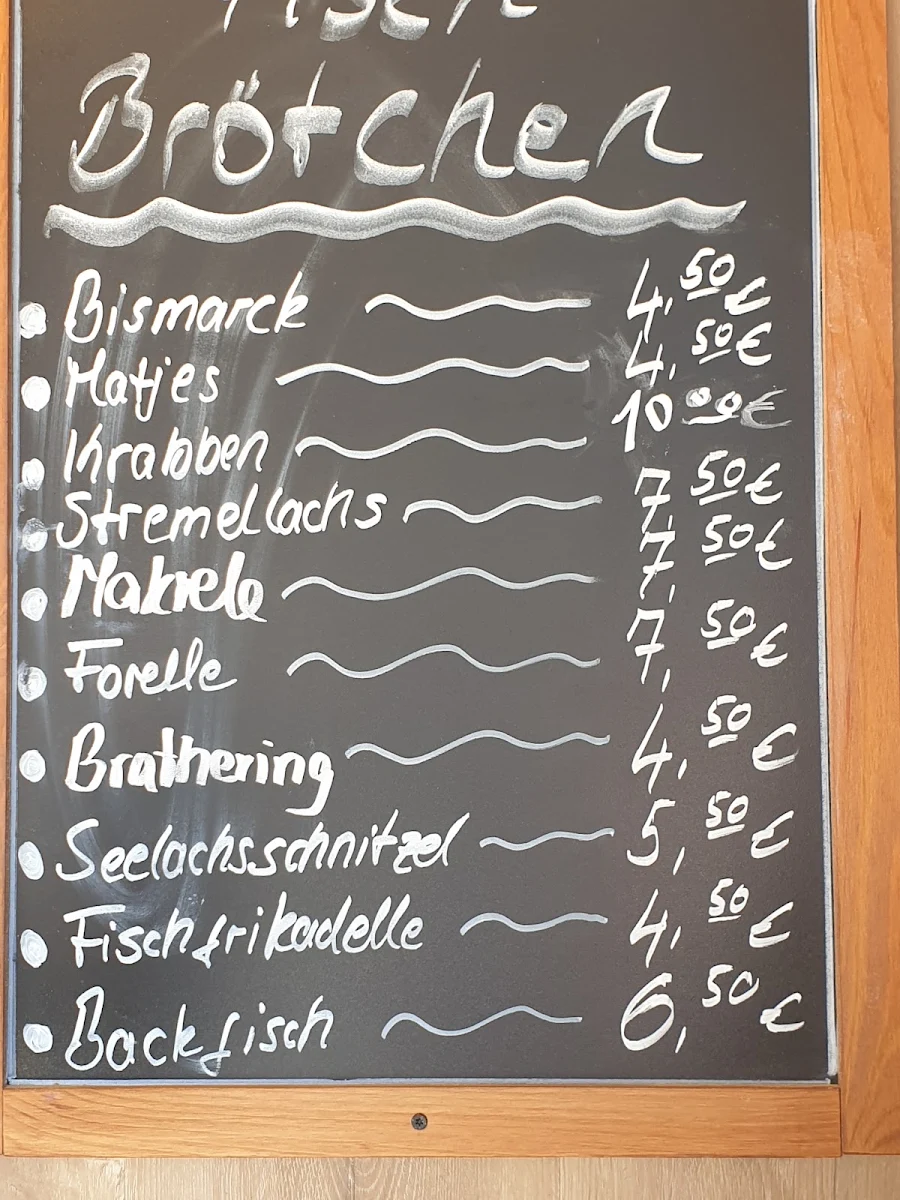 Fisch
Brötchen
Bismarck 4,50 €
Matjes 4,50 €
Krabben 10 00 €
Stremellachs 7,50 €
Makrele 7,50 €
Forelle 7,50 €
Brathering 4,50 €
Seelachsschnitzel 5,50 €
Fischfrikadelle 4,50 €
Backfisch 6,50 €